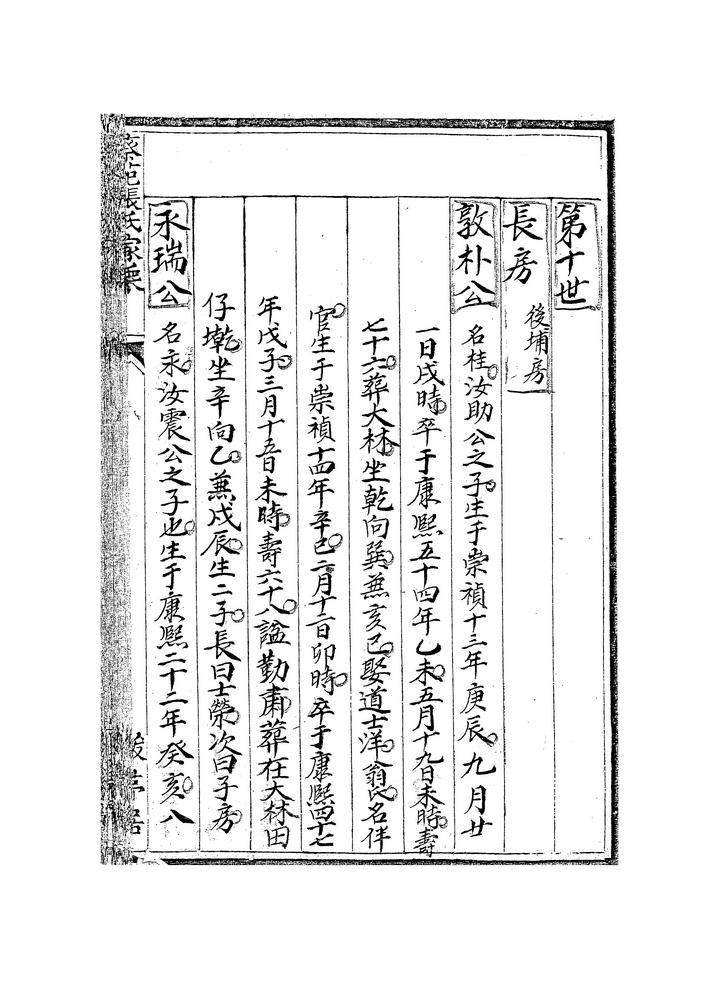 第十世
長房 後埔房
敦朴公 名桂汝助公之子生于崇禎十三年庚辰九月廿
一日戌時卒于康熙五十四年乙未五月十九日未時壽
七十六葬大林坐乾向巽兼亥巳娶道士洋翁氏名伴
官生于崇禎十四年辛巳二月十二日卯時卒于康熙四十七
年戊子三月十五日未時壽六十八謚勤肅葬在大林田
仔墘坐辛向乙兼戌辰生二子長曰士榮次曰子房
永瑞公 名永汝震公之子也生于康熙二十二年癸亥八
張氏家乘